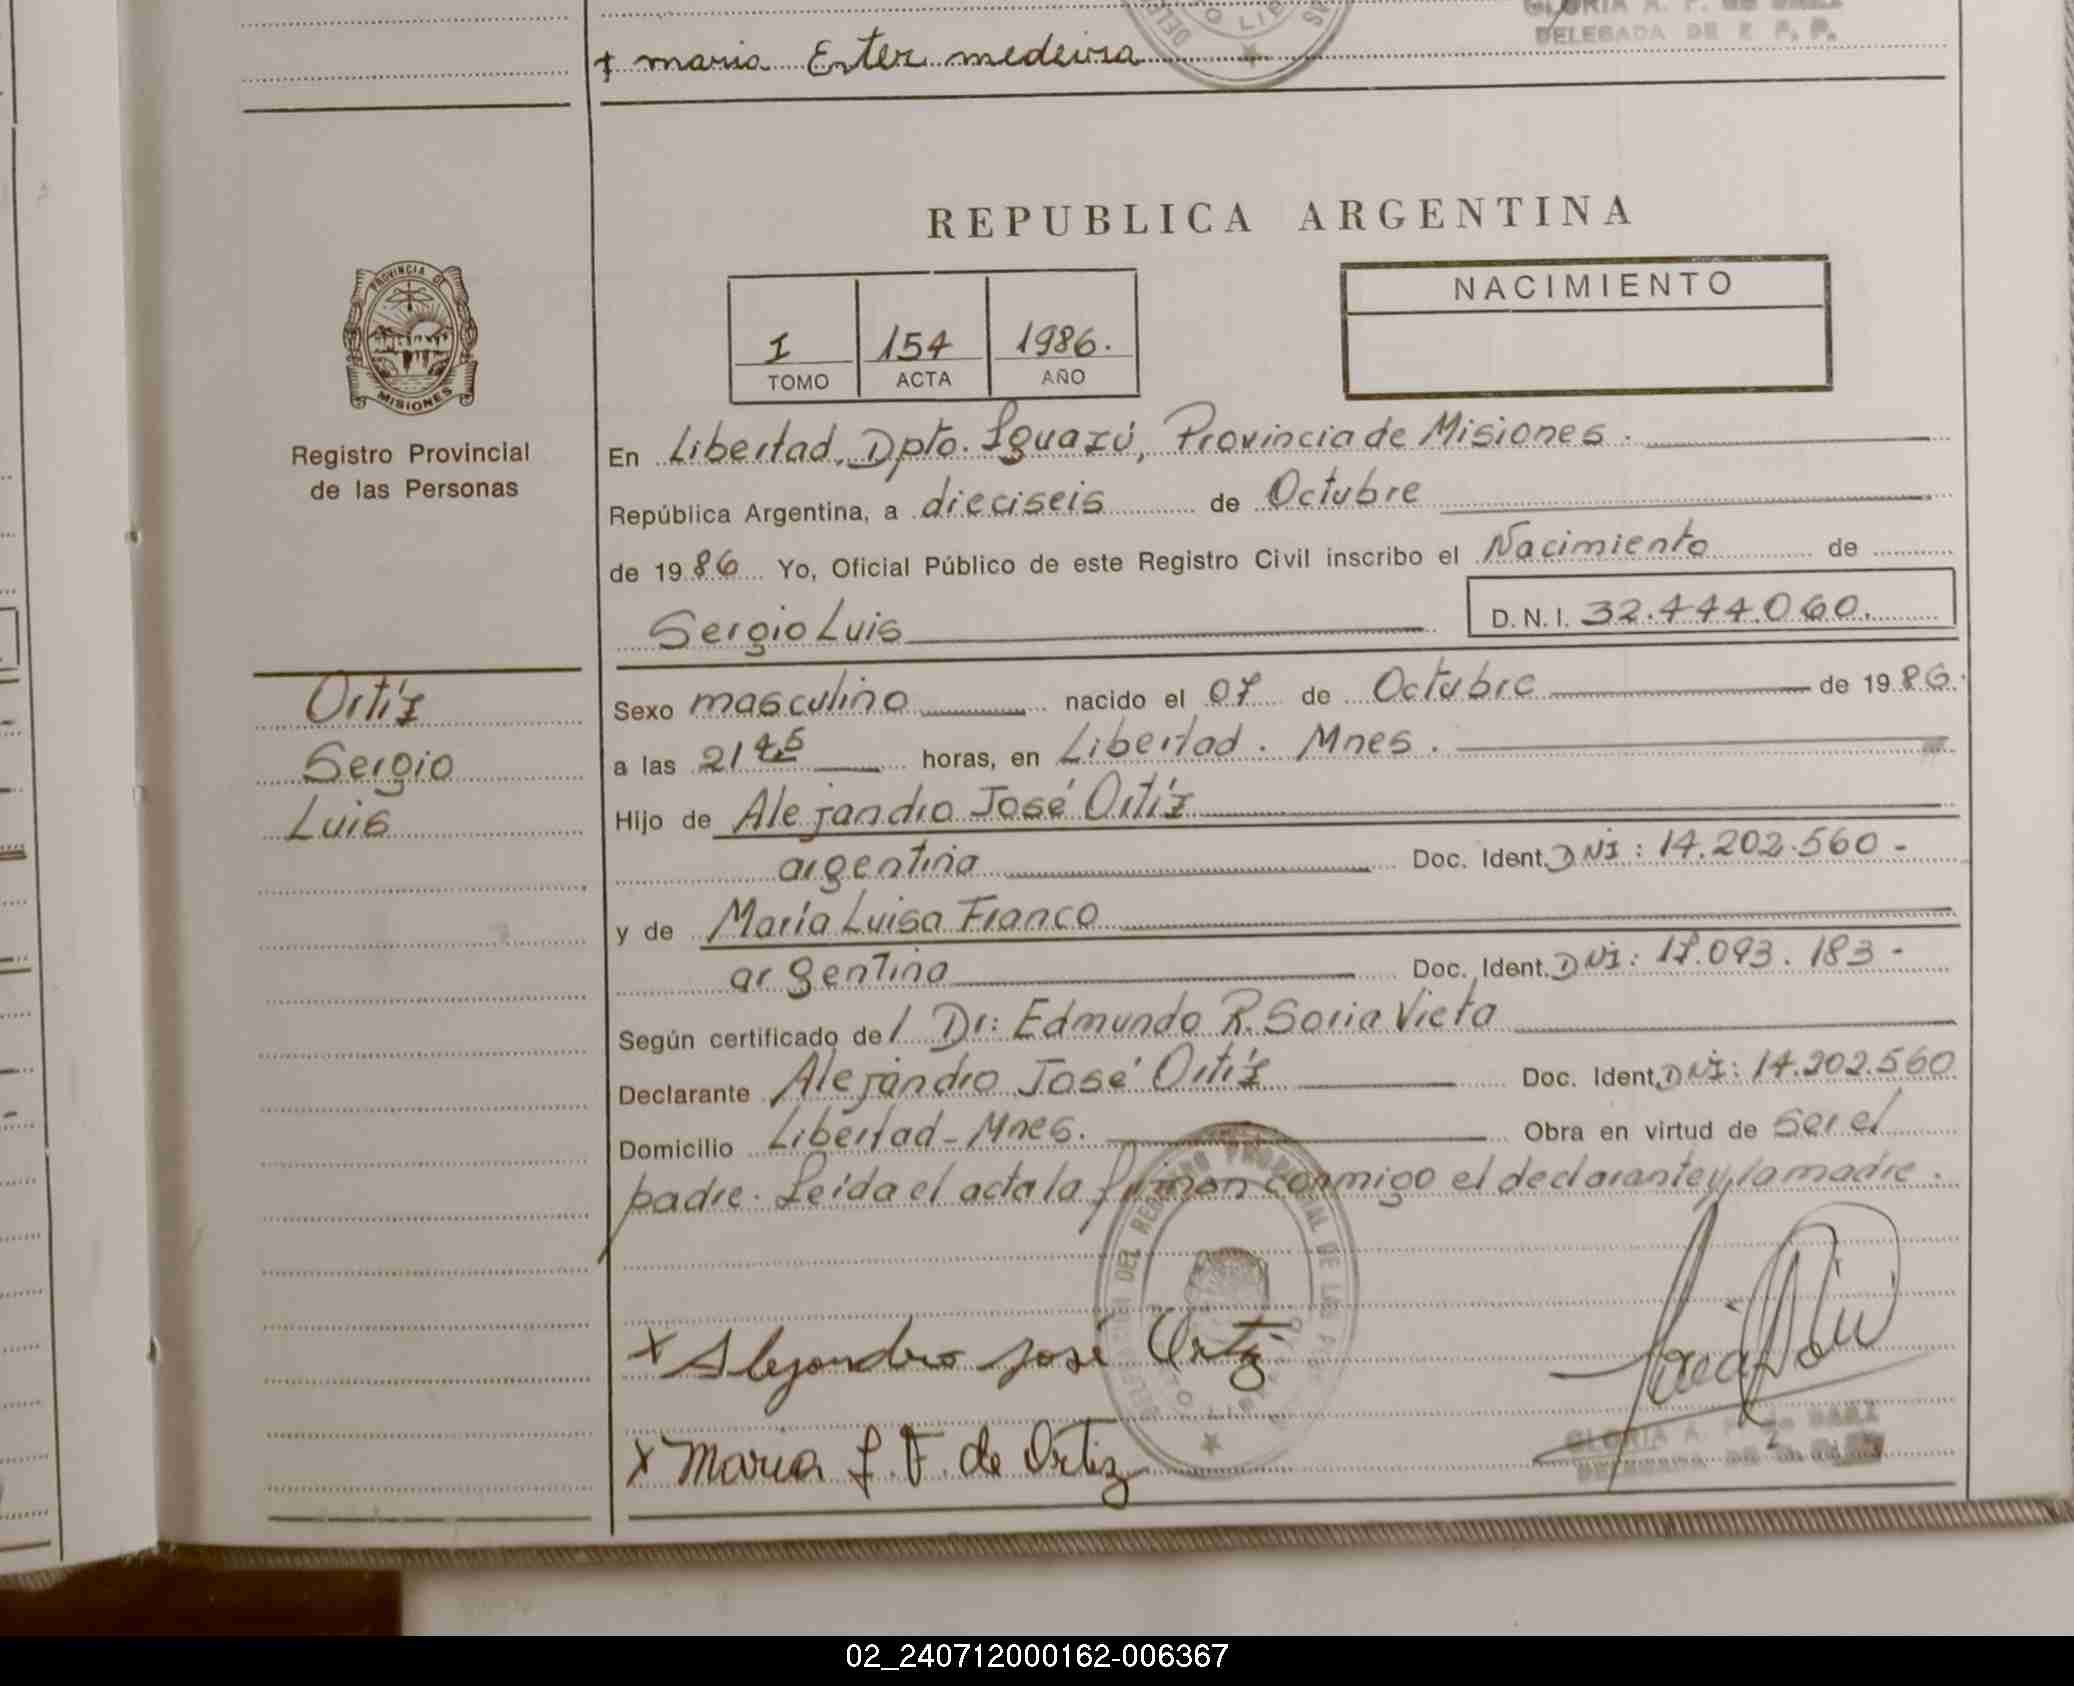 GLORIA A. P. DE
DELEGADA DE R. P. P.
maria Ester medeira
REPUBLICA ARGENTINA
PROVINCIA DE
MISIONES
Registro Provincial
de las Personas
NACIMIENTO
I 154 1986.
TOMO ACTA AÑO
En Libertad, Dpto. Iguazú, Provincia de Misiones.
República Argentina, a dieciseis de Octubre
de 1986 Yo, Oficial Público de este Registro Civil inscribo el Nacimiento de
Sergio Luis D. N. I. 32.444.060.
Ortíz
Sergio
Luis
Sexo masculino nacido el 07 de Octubre de 1986.
a las 21 45 horas, en Libertad. Mnes.
Hijo de Alejandro José Ortíz
argentina Doc. Ident. DNI: 14.202.560-
y de María Luisa Franco
argentina Doc. Ident. DNI: 17.093.183-
Según certificado de l Dr: Edmundo R. Soria Vieta
Declarante Alejandro José Ortíz Doc. Ident. DNI: 14.202.560
Domicilio Libertad - Mnes. Obra en virtud de ser el
padre. Leída el acta la firman conmigo el declarante y la madre.
DEL REGISTRO PROVINCIAL DE LAS
x Alejandro José Ortiz
x Maria L. F. de Ortiz
GLORIA A.
DELEGADA DE
02_240712000162-006367